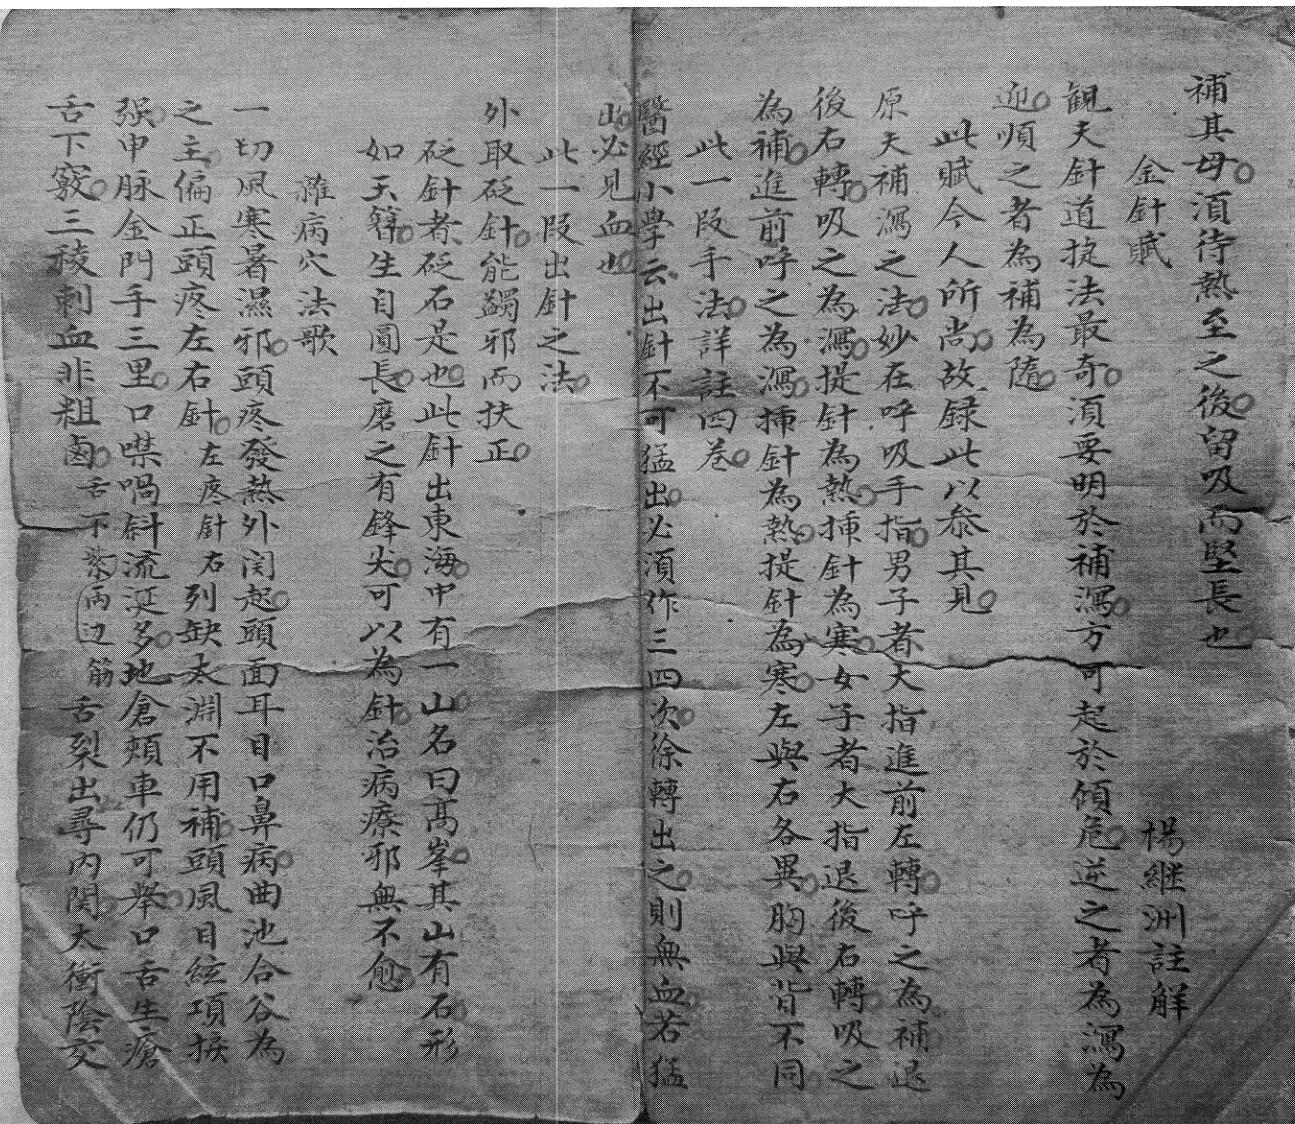 補其母須待熱至之後留吸而堅長也
金針賦
楊継洲註解
観夫針道捷法最奇須要明於補瀉方可起於傾危逆之者為瀉為
迎順之者為補為隨
此賦今人所尚故録此以叅其見
原夫補瀉之法妙在呼吸手指男子者大指進前左轉呼之為補退
後右轉吸之為瀉提針為熱挿針為寒女子者大指退後右轉吸之
為補進前呼之為瀉挿針為熱提針為寒左與右各異胸與背不同
此一段手法詳註四卷
醫經小學云出針不可猛出必須作三四次徐轉出之則無血若猛
出必見血也
此一段出針之法
外取砭針能蠲邪而扶正
砭針者砭石是也此針出東海中有一山名曰髙峯其山有石形
如玉簪生自圓長磨之有鋒尖可以為針治病療邪無不愈
雜病穴法歌
一切風寒暑濕邪頭疼發熱外関起頭面耳目口鼻病曲池合谷為
之主偏正頭疼左右針左疼針右列缺太淵不用補頭風目絃項捩
强申脉金門手三里口噤喎斜流涎多地倉頰車仍可舉口舌生瘡
舌下竅三稜刺血非粗鹵舌下紫兩边筋舌裂出尋內関太衝陰交